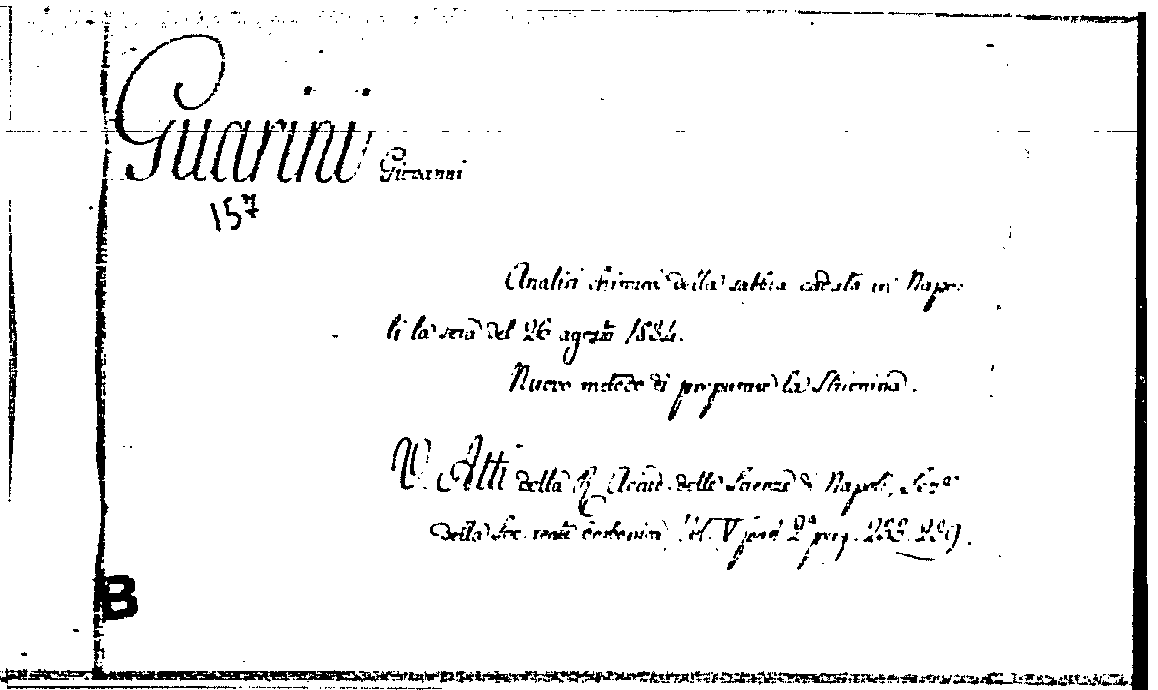 Guarini Giovanni
157
Analisi chimica della sabbia caduta in Napo-
li la sera del 26 agosto 1834.
Nuovo metodo di preparare la Stricnina.
V. Atti della R. Accad. delle Scienze di Napoli, Sezne
della Soc. reale borbonica Vol. V parte 2a pag. 239.
B